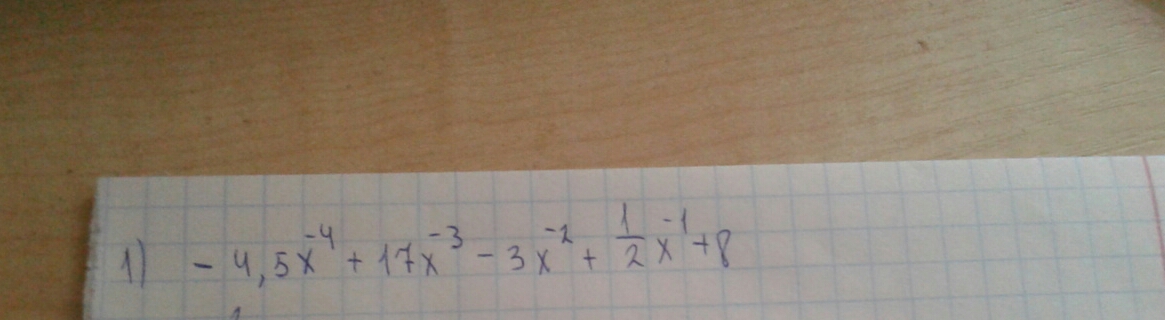 1) - 4,5x⁻⁴ + 17x⁻³ - 3x⁻² + 1/2 x⁻¹ + 8